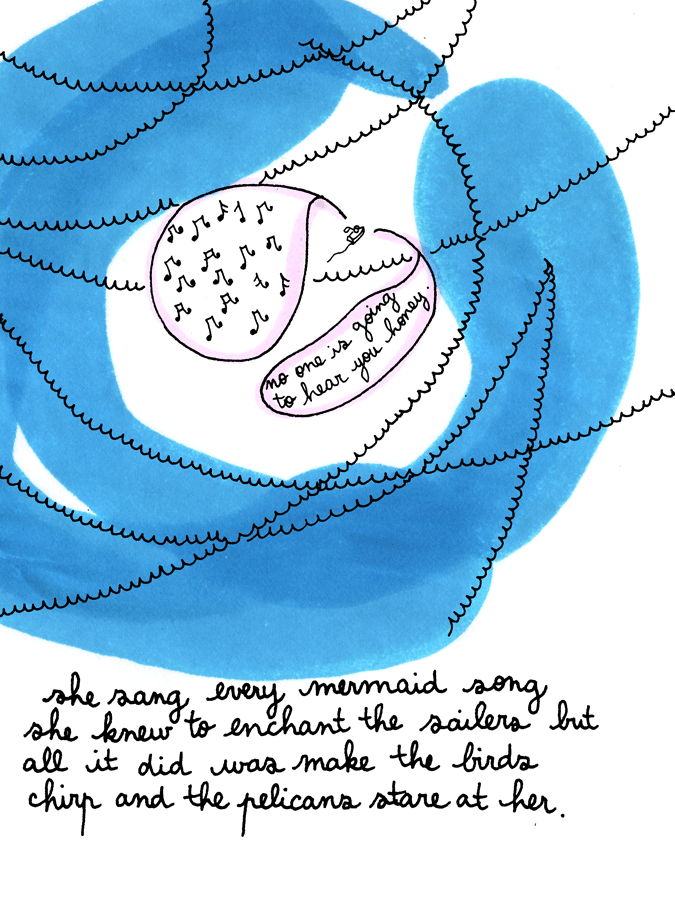 no one is going
to hear you honey.
she sang every mermaid song
she knew to enchant the sailers but
all it did was make the birds
chirp and the pelicans stare at her.